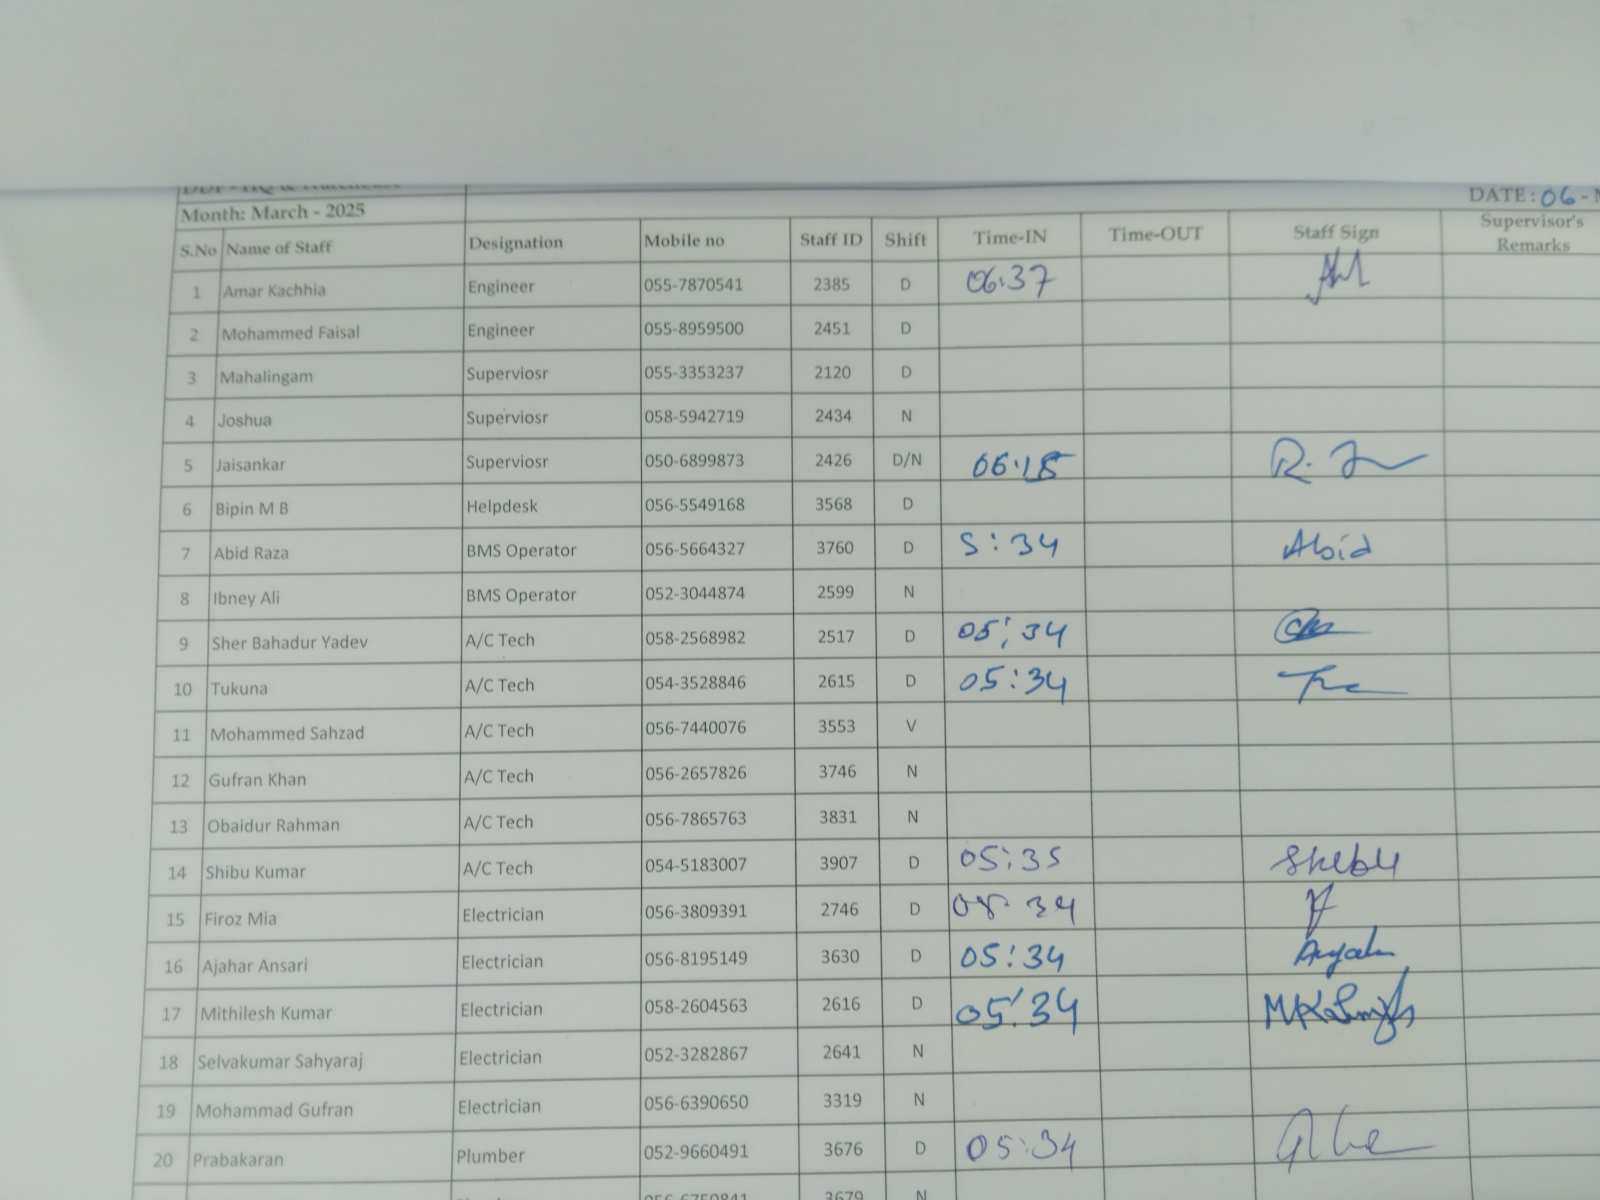 DATE: 06 -
Month: March - 2025
S.No Name of Staff Designation Mobile no Staff ID Shift Time-IN Time-OUT Staff Sign Supervisor's Remarks
1 Amar Kachhia Engineer 055-7870541 2385 D 06:37
2 Mohammed Faisal Engineer 055-8959500 2451 D
3 Mahalingam Superviosr 055-3353237 2120 D
4 Joshua Superviosr 058-5942719 2434 N
5 Jaisankar Superviosr 050-6899873 2426 D/N 06:15
6 Bipin M B Helpdesk 056-5549168 3568 D
7 Abid Raza BMS Operator 056-5664327 3760 D 5:34 Abid
8 Ibney Ali BMS Operator 052-3044874 2599 N
9 Sher Bahadur Yadev A/C Tech 058-2568982 2517 D 05:34
10 Tukuna A/C Tech 054-3528846 2615 D 05:34
11 Mohammed Sahzad A/C Tech 056-7440076 3553 V
12 Gufran Khan A/C Tech 056-2657826 3746 N
13 Obaidur Rahman A/C Tech 056-7865763 3831 N
14 Shibu Kumar A/C Tech 054-5183007 3907 D 05:35 Shebu
15 Firoz Mia Electrician 056-3809391 2746 D 34
16 Ajahar Ansari Electrician 056-8195149 3630 D 05:34
17 Mithilesh Kumar Electrician 058-2604563 2616 D 05:34
18 Selvakumar Sahyaraj Electrician 052-3282867 2641 N
19 Mohammad Gufran Electrician 056-6390650 3319 N
20 Prabakaran Plumber 052-9660491 3676 D 05:34
3679 N